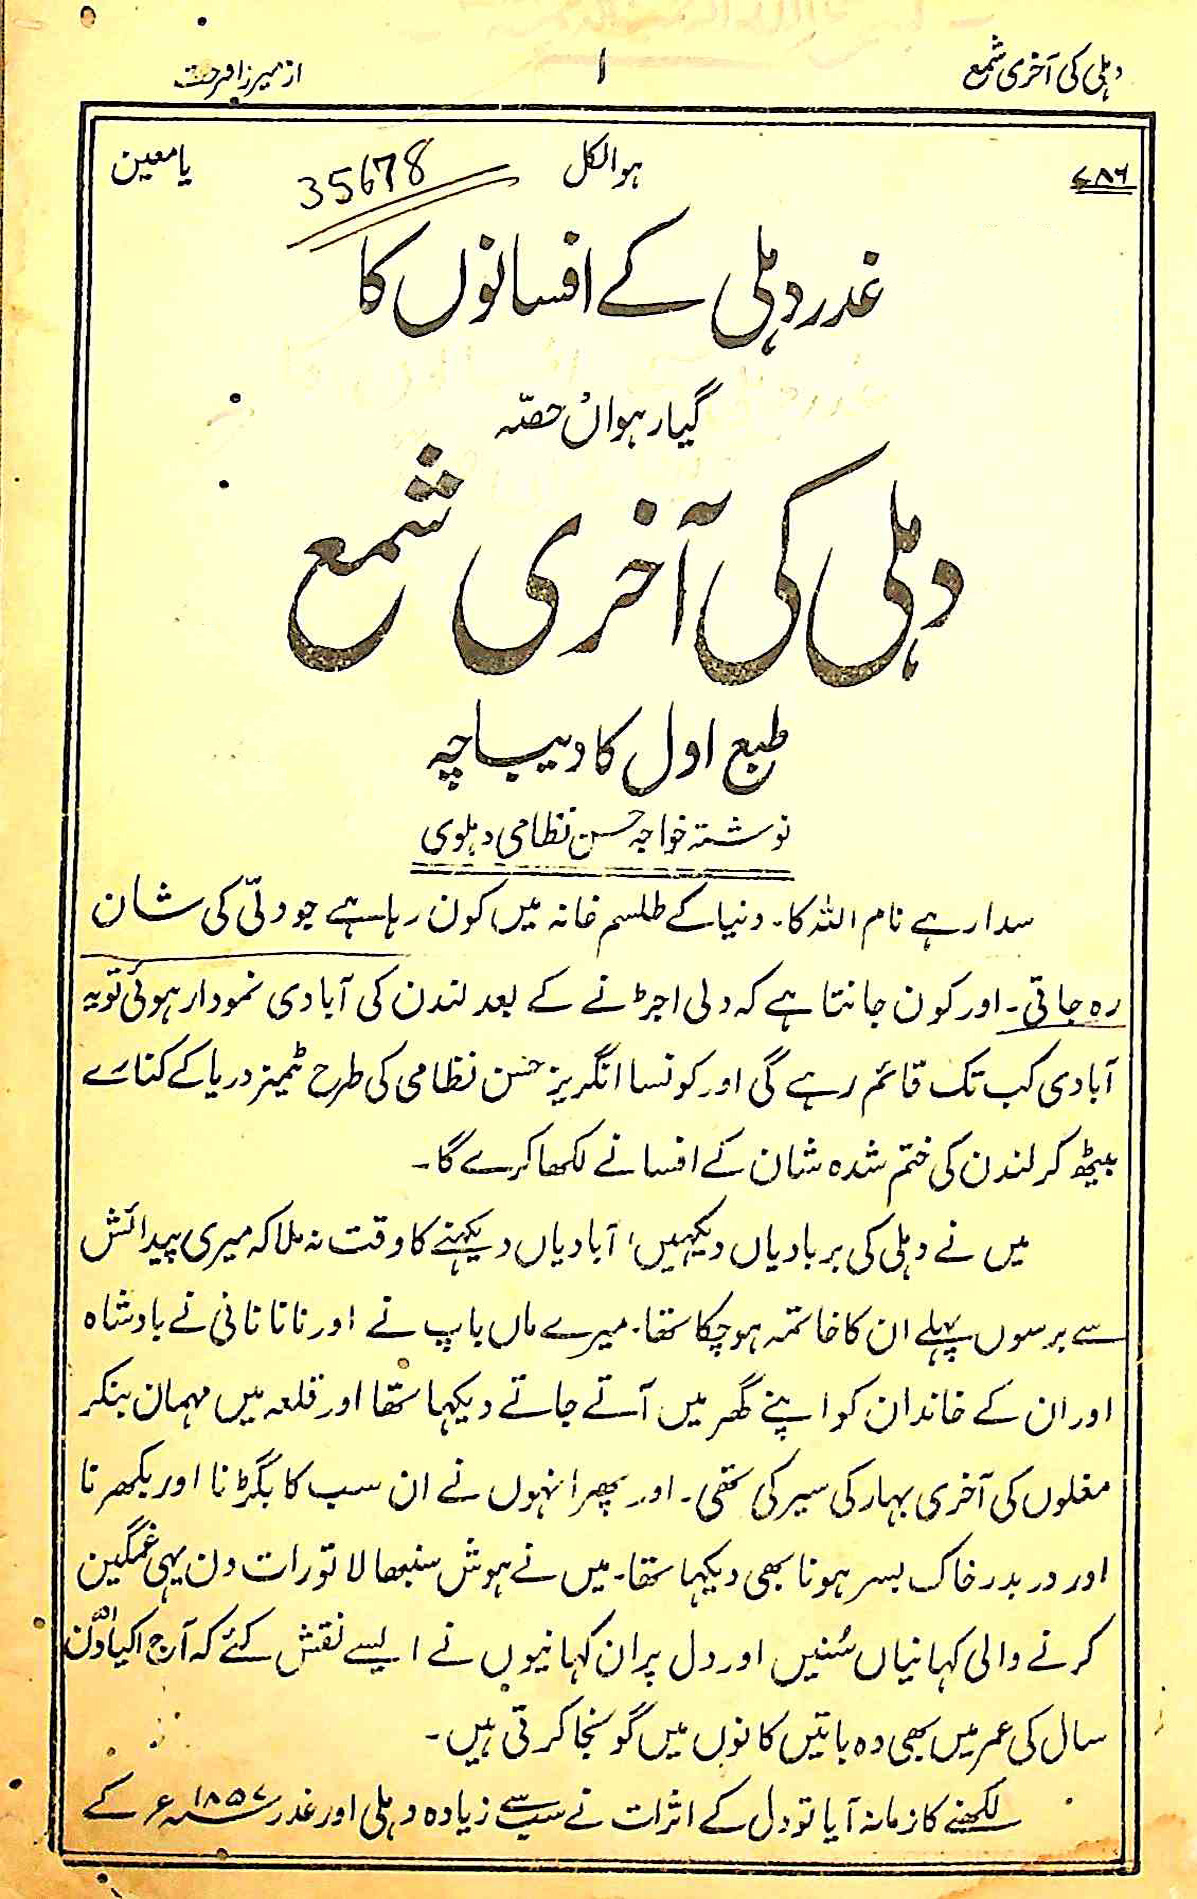 دہلی کی آخری شمع
۱
از میرزا فرحت
۷۸۶
ہوالکل
یا معین
35678
غدر دہلی کے افسانوں کا
گیارہواں حصّہ
دہلی کی آخری شمع
طبع اول کا دیباچہ
نوشتہ خواجہ حسن نظامی دہلوی
سدا رہے نام اللہ کا۔ دنیا کے طلسم خانہ میں کون رہا ہے جو دلّی کی شان
رہ جاتی۔ اور کون جانتا ہے کہ دلی اجڑنے کے بعد لندن کی آبادی نمودار ہوئی تو یہ
آبادی کب تک قائم رہے گی اور کونسا انگریز حسن نظامی کی طرح ٹمیز دریا کے کنارے
بیٹھ کر لندن کی ختم شدہ شان کے افسانے لکھا کرے گا۔
میں نے دہلی کی بربادیاں دیکہیں، آبادیاں دیکہنے کا وقت نہ ملا کہ میری پیدائش
سے برسوں پہلے ان کا خاتمہ ہو چکا تھا۔ میرے ماں باپ نے اور نانا نانی نے بادشاہ
اور ان کے خاندان کو اپنے گھر میں آتے جاتے دیکہا تھا اور قلعہ میں مہمان بنکر
مغلوں کی آخری بہار کی سیر کی تھی۔ اور پھر انہوں نے ان سب کا بگڑنا اور بکھرنا
اور دربدر خاک بسر ہونا بھی دیکہا تھا۔ میں نے ہوش سنبھالا تو رات دن یہی غمگین
کرنے والی کہانیاں سُنیں اور دل پر ان کہانیوں نے ایسے نقش کئے کہ آج اکیاون
سال کی عمر میں بھی وہ باتیں کانوں میں گونجا کرتی ہیں۔
لکھنے کا زمانہ آیا تو دل کے اثرات نے سب سے زیادہ دہلی اور غدر ۱۸۵۷ء کے